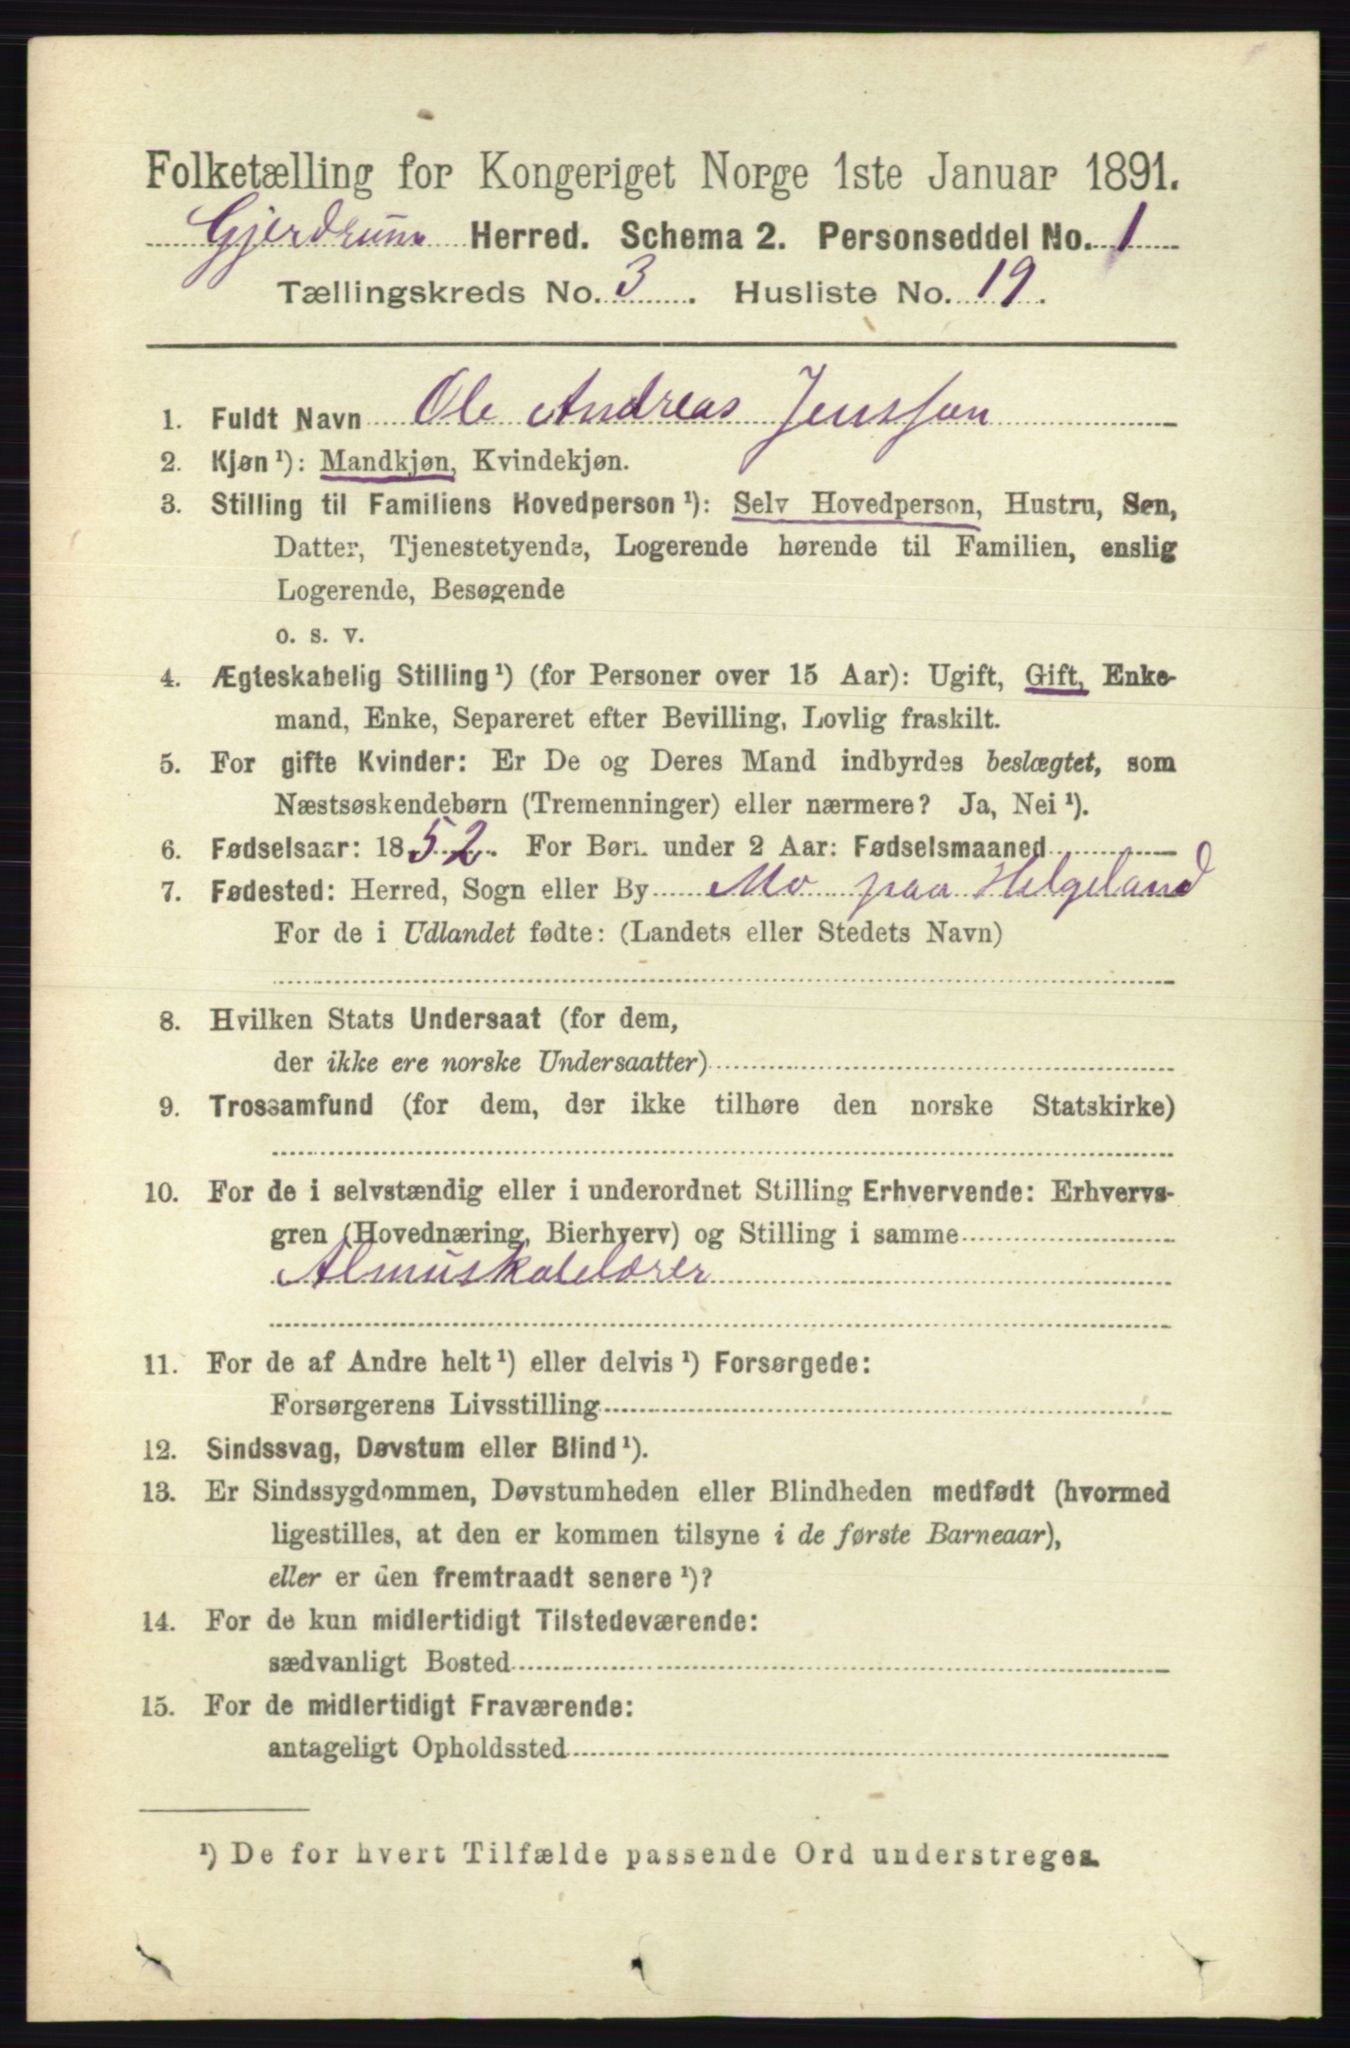 Folketælling for Kongeriget Norge 1ste Januar 1891.
Gjerdrum Herred. Schema 2. Personseddel No. 1
Tællingskreds No. 3. Husliste No. 19.
1. Fuldt Navn Ole Andreas Jensson
2. Kjøn ¹): Mandkjøn, Kvindekjøn.
3. Stilling til Familiens Hovedperson ¹): Selv Hovedperson, Hustru, Søn,
Datter, Tjenestetyende, Logerende hørende til Familien, enslig
Logerende, Besøgende
o. s. v.
4. Ægteskabelig Stilling ¹) (for Personer over 15 Aar): Ugift, Gift, Enke-
mand, Enke, Separeret efter Bevilling, Lovlig fraskilt.
5. For gifte Kvinder: Er De og Deres Mand indbyrdes beslægtet, som
Næstsøskendebørn (Tremenninger) eller nærmere? Ja, Nei ¹).
6. Fødselsaar: 1852. For Børn under 2 Aar: Fødselsmaaned
7. Fødested: Herred, Sogn eller By Mo paa Helgeland
For de i Udlandet fødte: (Landets eller Stedets Navn)
8. Hvilken Stats Undersaat (for dem,
der ikke ere norske Undersaatter)
9. Trossamfund (for dem, der ikke tilhøre den norske Statskirke)
10. For de i selvstændig eller i underordnet Stilling Erhvervende: Erhvervs-
gren (Hovednæring, Bierhverv) og Stilling i samme
Almuskolelærer
11. For de af Andre helt ¹) eller delvis ¹) Forsørgede:
Forsørgerens Livsstilling
12. Sindssvag, Døvstum eller Blind ¹).
13. Er Sindssygdommen, Døvstumheden eller Blindheden medfødt (hvormed
ligestilles, at den er kommen tilsyne i de første Barneaar),
eller er den fremtraadt senere ¹)?
14. For de kun midlertidigt Tilstedeværende:
sædvanligt Bosted
15. For de midlertidigt Fraværende:
antageligt Opholdssted
¹) De for hvert Tilfælde passende Ord understreges.